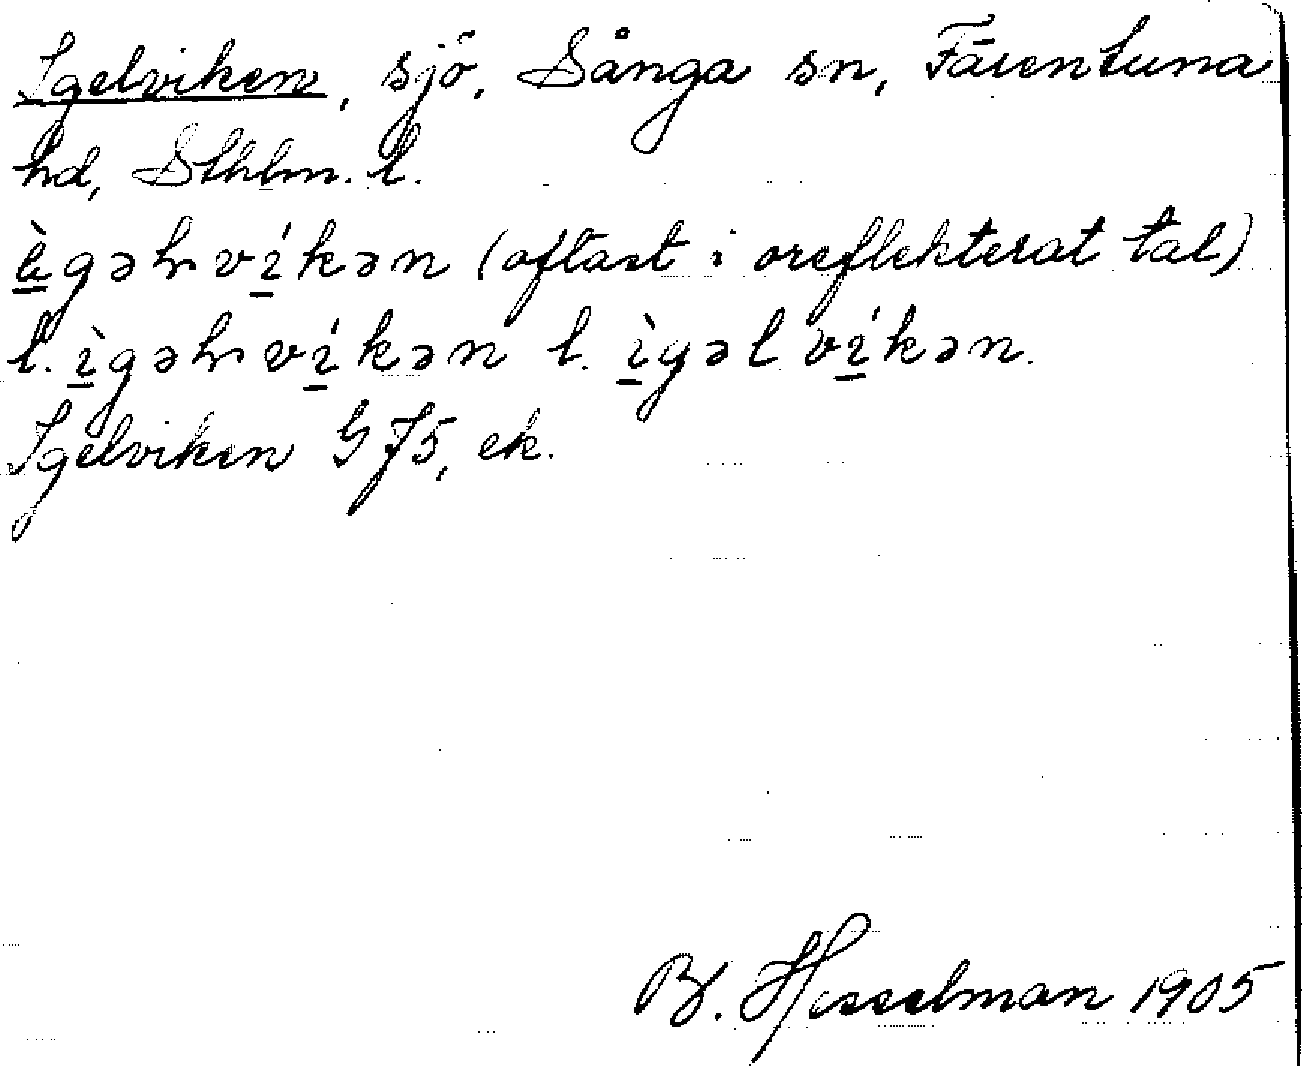 Igelviken, sjö, Sånga sn, Färentuna
hd, Sthlm. l.
(oftast i oreflekterat tal)
l. ìgəlvíkən.
Igelviken G 75, ek.
B. Hesselman 1905